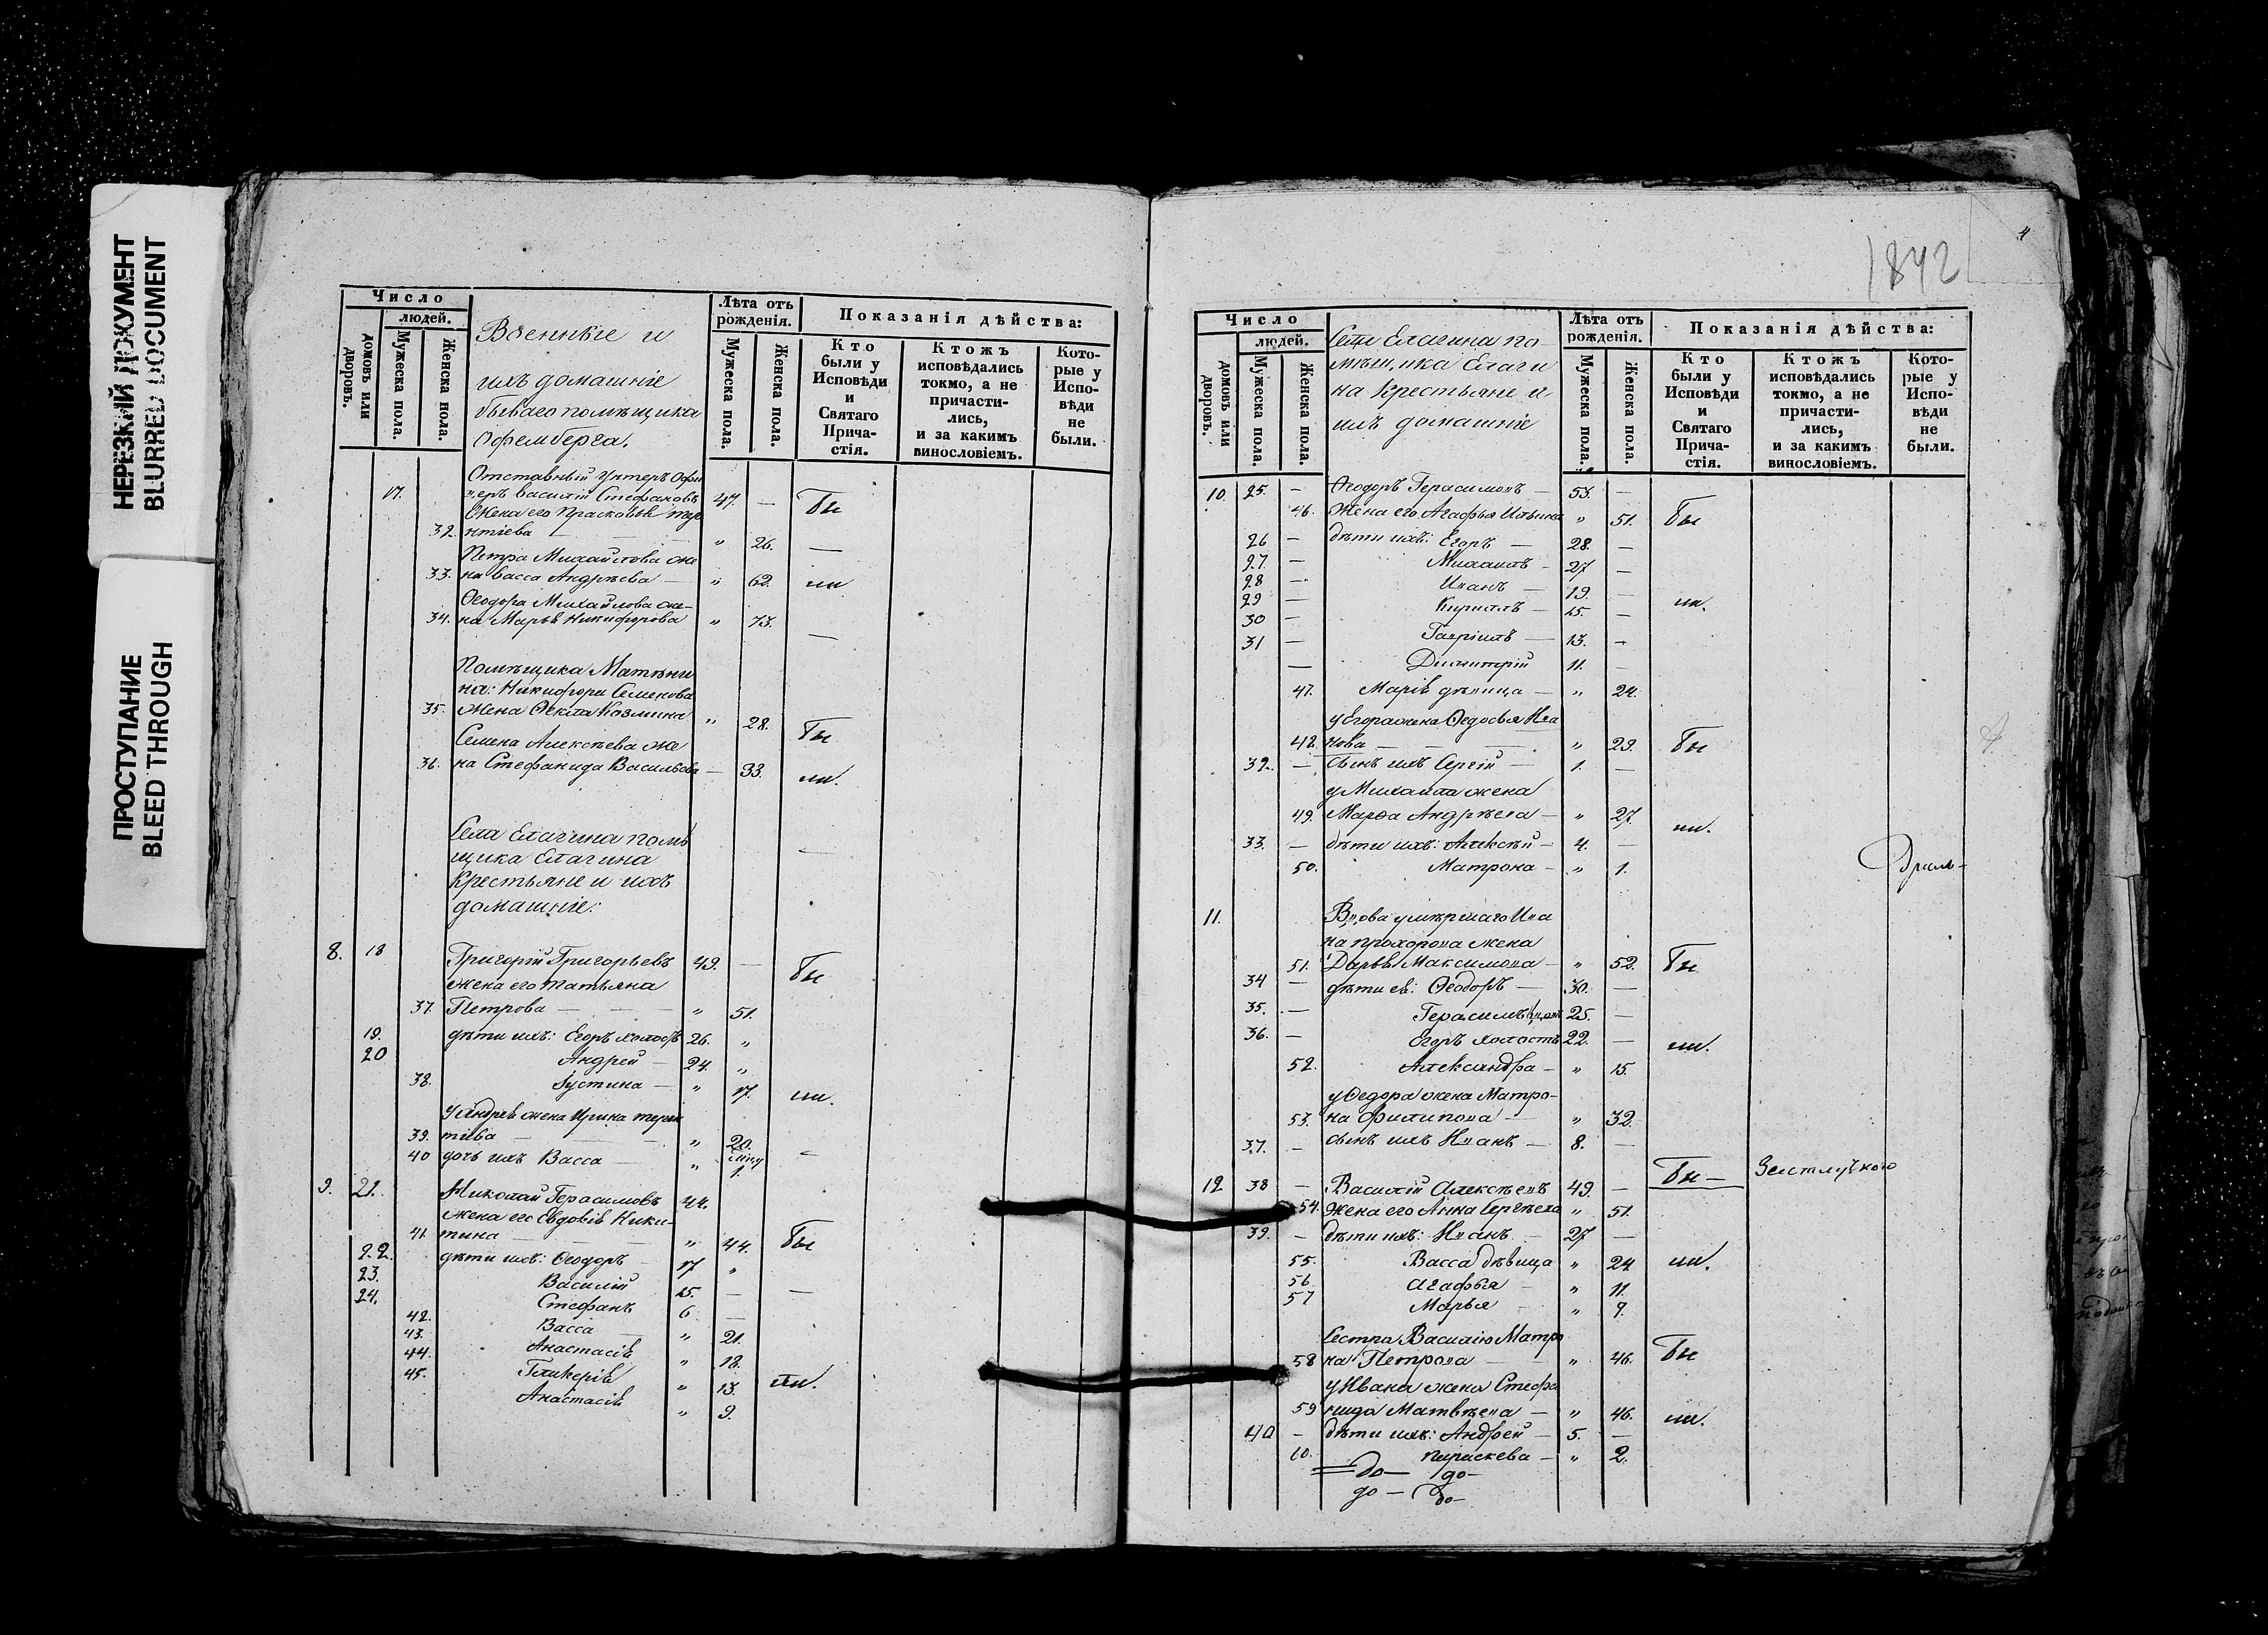 НЕРЕЗКИЙ ДОКУМЕНТ
BLURRED DOCUMENT
ПРОСТУПАНИЕ
BLEED THROUGH
Число
людей.
домовъ или дворовъ.
Мужеска пола.
Женска пола.
Военные и
ихъ домашніе
бываго помѣщика
Офемберга.
Лѣта отъ рожденія.
Мужеска пола.
Женска пола.
Показанія дѣйства:
Кто были у Исповѣди и Святаго Причастія.
Ктожъ исповѣдались токмо, а не причастились, и за какимъ винословіемъ.
Которые у Исповѣди не были.
Отставный Унтеръ Офи
17. церъ Василій Стефановъ 47. — Бы
Жена его Прасковья
32. нтіева — " 26. —
Петра Михайлова же
33. на Васса Андрѣева — " 62. ли
Ѳеодора Михайлова же-
34. на Марья Никифорова " 73. —
Помѣщика
на: Никифора Семенова
35. жена Ѳекла Козмина " 28. Бы
Семена Алексѣева же
36. на Стефанида Васильева — 33. ли.
Села Елагина помѣ
щика Елагина
Крестьяне и ихъ
домашніе:
8. 18 Григорій Григорьевъ 49. — Бы
жена его Татьяна
37. Петрова — " 51.
19. дѣти ихъ: Егоръ холостъ 26. "
20 Андрей — 24. "
38. Іустина — " 17. ли.
у Андрея жена Ирина Терен
39. тіева — " 20.
40 дочь ихъ Васса — " 1. —
9. 21. Николай Герасимовъ 44.
жена его Евдокія Ники-
41. тина — " 44. Бы
22. дѣти ихъ: Ѳеодоръ 17 "
23. Василій 15. — —
24. Стефанъ 6 —
42. Васса " 21.
43. Анастасія " 18.
44. Гликерія " 13. ли.
45. Анастасія " 9.
1842
4
Число
людей.
домовъ или дворовъ.
Мужеска пола.
Женска пола.
Села Елагина по-
мѣщика Елаги
на Крестьяне и
ихъ домашніе
Лѣта отъ рожденія.
Мужеска пола.
Женска пола.
Показанія дѣйства:
Кто были у Исповѣди и Святаго Причастія.
Ктожъ исповѣдались токмо, а не причастились, и за какимъ винословіемъ.
Которые у Исповѣди не были.
10. 25. — Ѳеодоръ Герасимовъ — 53. —
46. Жена его Агафья Ильина " 51. Бы
26 — дѣти ихъ: Егоръ — 28. —
27. — Михаилъ — 27 —
28 — Иванъ — 19. —
29 — Кириллъ — 15. — ли.
30 — Гавріилъ — 13. —
31 — Димитрій 11. —
47. Марія дѣвица — " 24.
у Егора жена Ѳедосья Ива
48. нова — " 29. Бы
32. — сынъ ихъ Сергій — 1. —
у Михаила жена
49. Марѳа Андрѣева — " 27. ли.
33. — дѣти ихъ: Алексѣй — 4. —
50. Матрона — " 1.
11. Вдова умершаго Ива
на Прохорова жена
51. Дарья Максимова — " 52. Бы
34 — дѣти ея: Ѳеодоръ — 30. —
35. — Герасимъ 25. —
36. — Егоръ холостъ 22. — ли.
52. Александра — " 15.
у Ѳедора жена Матро-
53. на Филипова — " 32.
37. — сынъ ихъ Иванъ — 8. —
12 38 — Василій Алексѣевъ 49. — Бы —
54. Жена его Анна Сергѣева " 51.
39. — дѣти ихъ: Иванъ — 27 —
55. Васса дѣвица " 24 ли.
56 Агафья — " 11.
57 Марья — " 9.
Сестра Василію Матро
58 на Петрова — " 46. Бы
у Ивана жена Стефа
59 нида Матвѣева — " 46. ли.
40 — дѣти ихъ: Андрей — 5. —
60. Параскева — " 2.
до — до —
до — до —